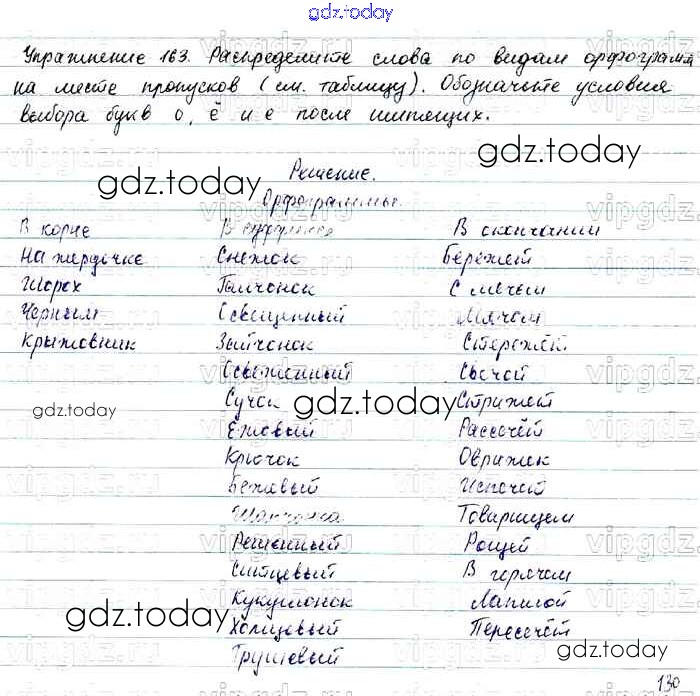 gdz.today
Упражнение 163. Распределите слова по видам орфограмм
на месте пропусков (см. таблицу). Обозначьте условия
выбора букв о, ё и е после шипящих.
Решение.
gdz.today gdz.today
Орфограммы.
В корне В суффиксе В окончании
На жердочке Снежок Бережёт
Шорох Галчонок С мечом
Черным Освещенный Мячом
Крыжовник Зайчонок Стережёт
Освеженный Свечой
gdz.today Сучок gdz.today Стрижет
Ежовый Рассечёт
Крючок Овражек
Бежевый Испечёт
Шапчонка Товарищем
Решенный Рощей
Ситцевый В горячем
gdz.today Кукушонок Лапшой
Холщевый Пересечёт
gdz.today
Грушевый
130
vipgdz.ru